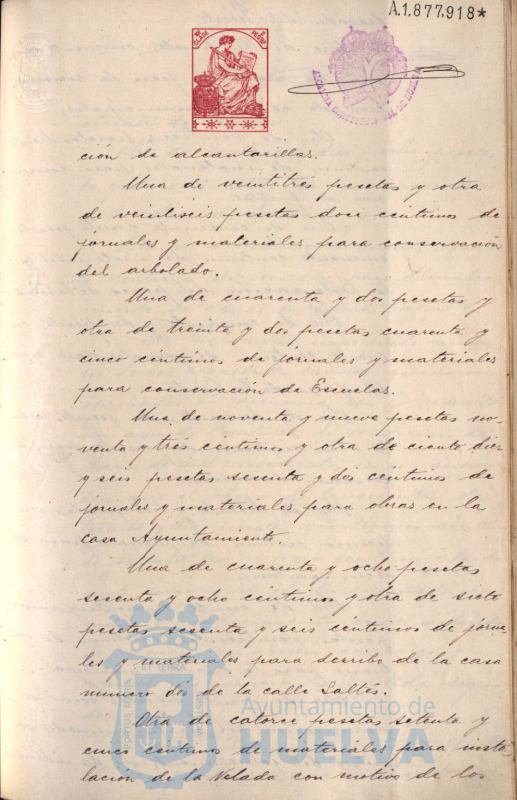 A.1.877,918*
ALCALDIA CONSTITUCIONAL DE HUELVA
ción de alcantarillas.
Una de veintitrés pesetas y otra
de veintiseis pesetas doce céntimos de
jornales y materiales para conservación
del arbolado.
Una de cuarenta y dos pesetas y
otra de treinta y dos pesetas cuarenta y
cinco céntimos de jornales y materiales
para conservación de Escuelas.
Una de noventa y nueve pesetas no-
venta y trés céntimos y otra de ciento diez
y seis pesetas sesenta y dos céntimos de
jornales y materiales para obras en la
casa Ayuntamiento.
Una de cuarenta y ocho pesetas
sesenta y ocho céntimos y otra de siete
pesetas sesenta y seis céntimos de jorna-
les y materiales para derribo de la casa
numero dos de la calle Saltés.
Otra de catorce pesetas setenta y
cinco céntimos de materiales para insta-
lación de la Velada con motivo de los
Ayuntamiento de
HUELVA